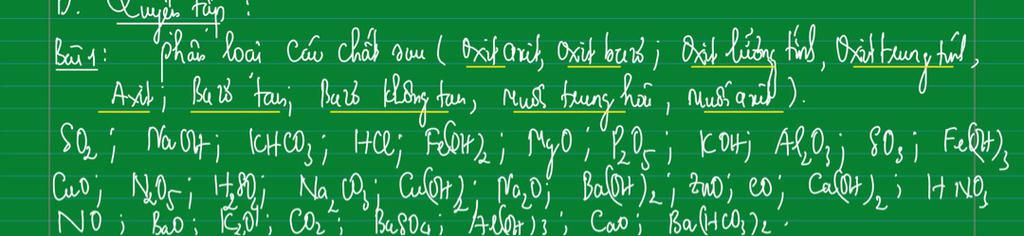 D. Luyện tập :
Bài 1: phân loại các chất sau ( Oxit axit, oxit bazơ ; Oxit lưỡng tính, Oxit trung tính,
Axit ; Bazơ tan ; Bazơ không tan, muối trung hòa, muối axit ).
SO₂ ; NaOH ; KHCO₃ ; HCl ; Fe(OH)₂ ; MgO ; P₂O₅ ; KOH ; Al₂O₃ ; SO₃ ; Fe(OH)₃
CuO ; N₂O₅ ; H₂SO₄ ; Na₂CO₃ ; Cu(OH)₂ ; Na₂O ; Ba(OH)₂ ; ZnO ; CO ; Ca(OH)₂ ; HNO₃
NO ; BaO ; K₂O ; CO₂ ; BaSO₄ ; Al(OH)₃ ; CaO ; Ba(HCO₃)₂.